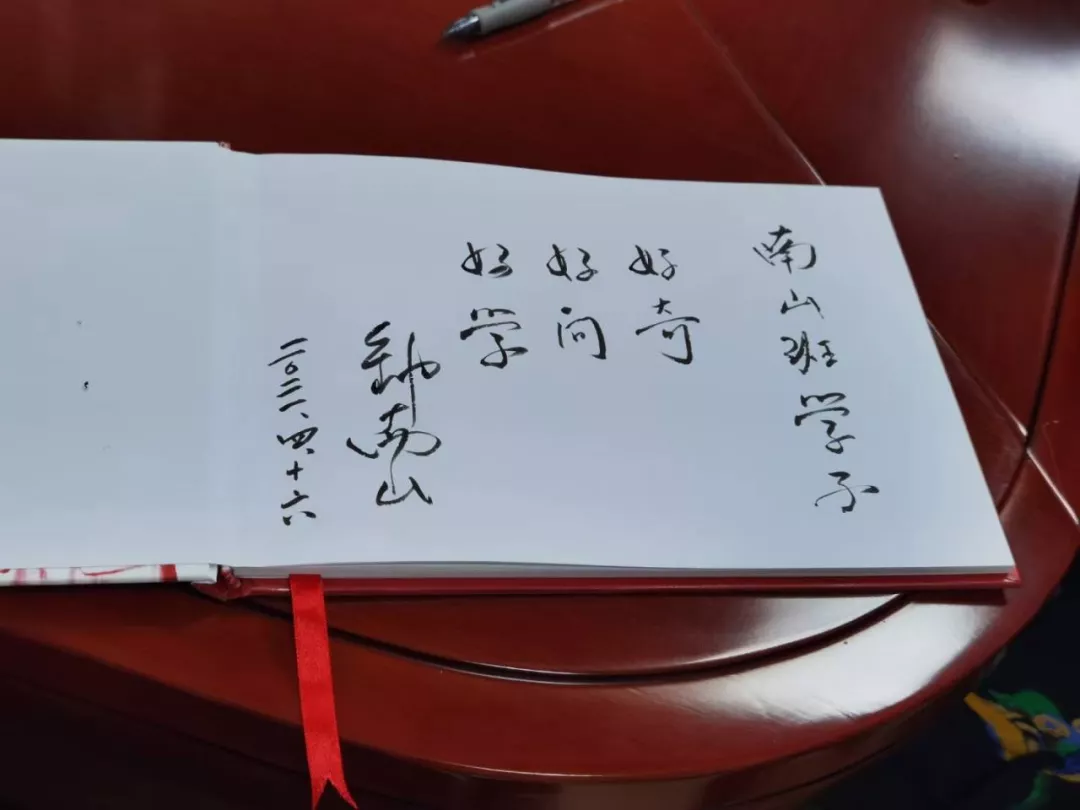 南山班学子
好奇
好问
好学
钟南山
二〇二一、四、十六